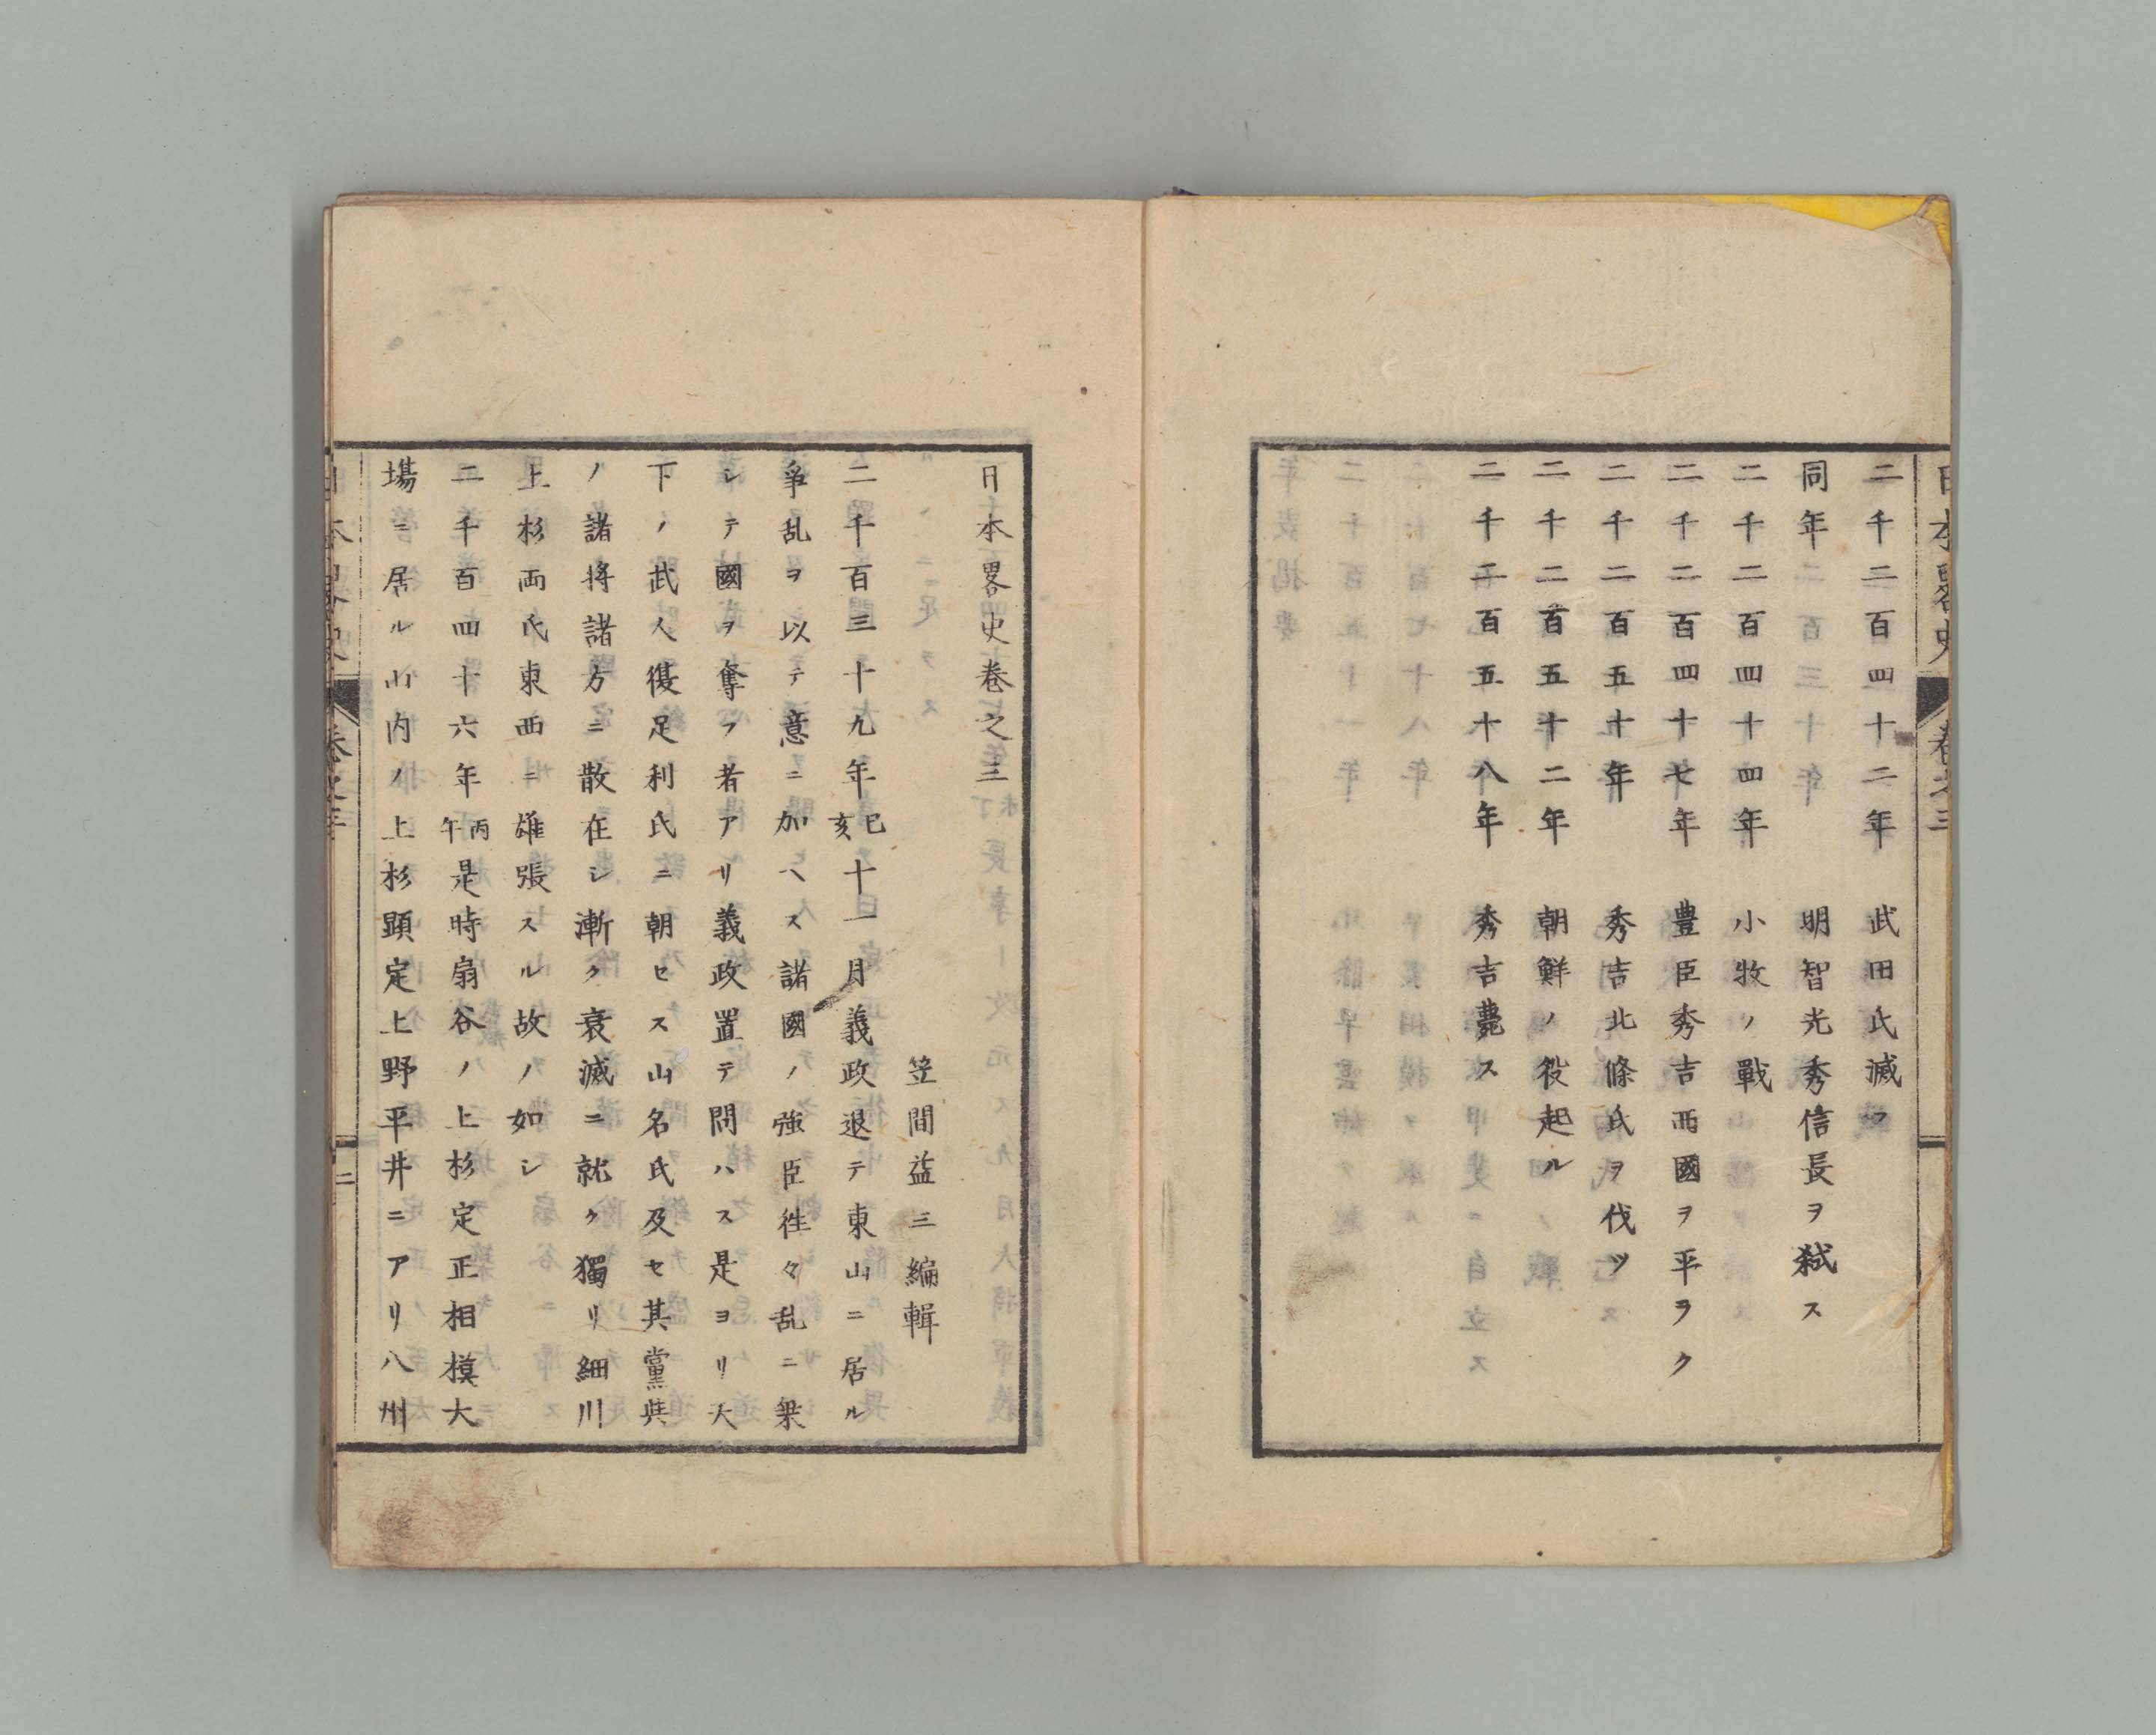 日本畧史 卷之三
二千二百四十二年 武田氏滅フ
同年 明智光秀信長ヲ弑ス
二千二百四十四年 小牧ノ戰
二千二百四十七年 豊臣秀吉西國ヲ平ラク
二千二百五十年 秀吉北條氏ヲ伐ツ
二千二百五十二年 朝鮮ノ役起ル
二千二百五十八年 秀吉薨ス
日本畧史卷之三
笠間益三編輯
二千百三十九年己亥十一月義政退テ東山ニ居ル
爭乱ヲ以テ意ニ加ヘス諸國ノ強臣徃々乱ニ乗
シテ國ヲ奪フ者アリ義政置テ問ハス是ヨリ天
下ノ武人復足利氏ニ朝セス山名氏及セ其黨與
ノ諸将諸方ニ散在シ漸ク衰滅ニ就ク獨リ細川
上杉両氏東西ニ雄張スル故ノ如シ
二千百四十六年丙午是時扇谷ノ上杉定正相摸大
場ニ居ル山内ノ上杉顕定上野平井ニアリ八州
日本畧史 卷之三 二